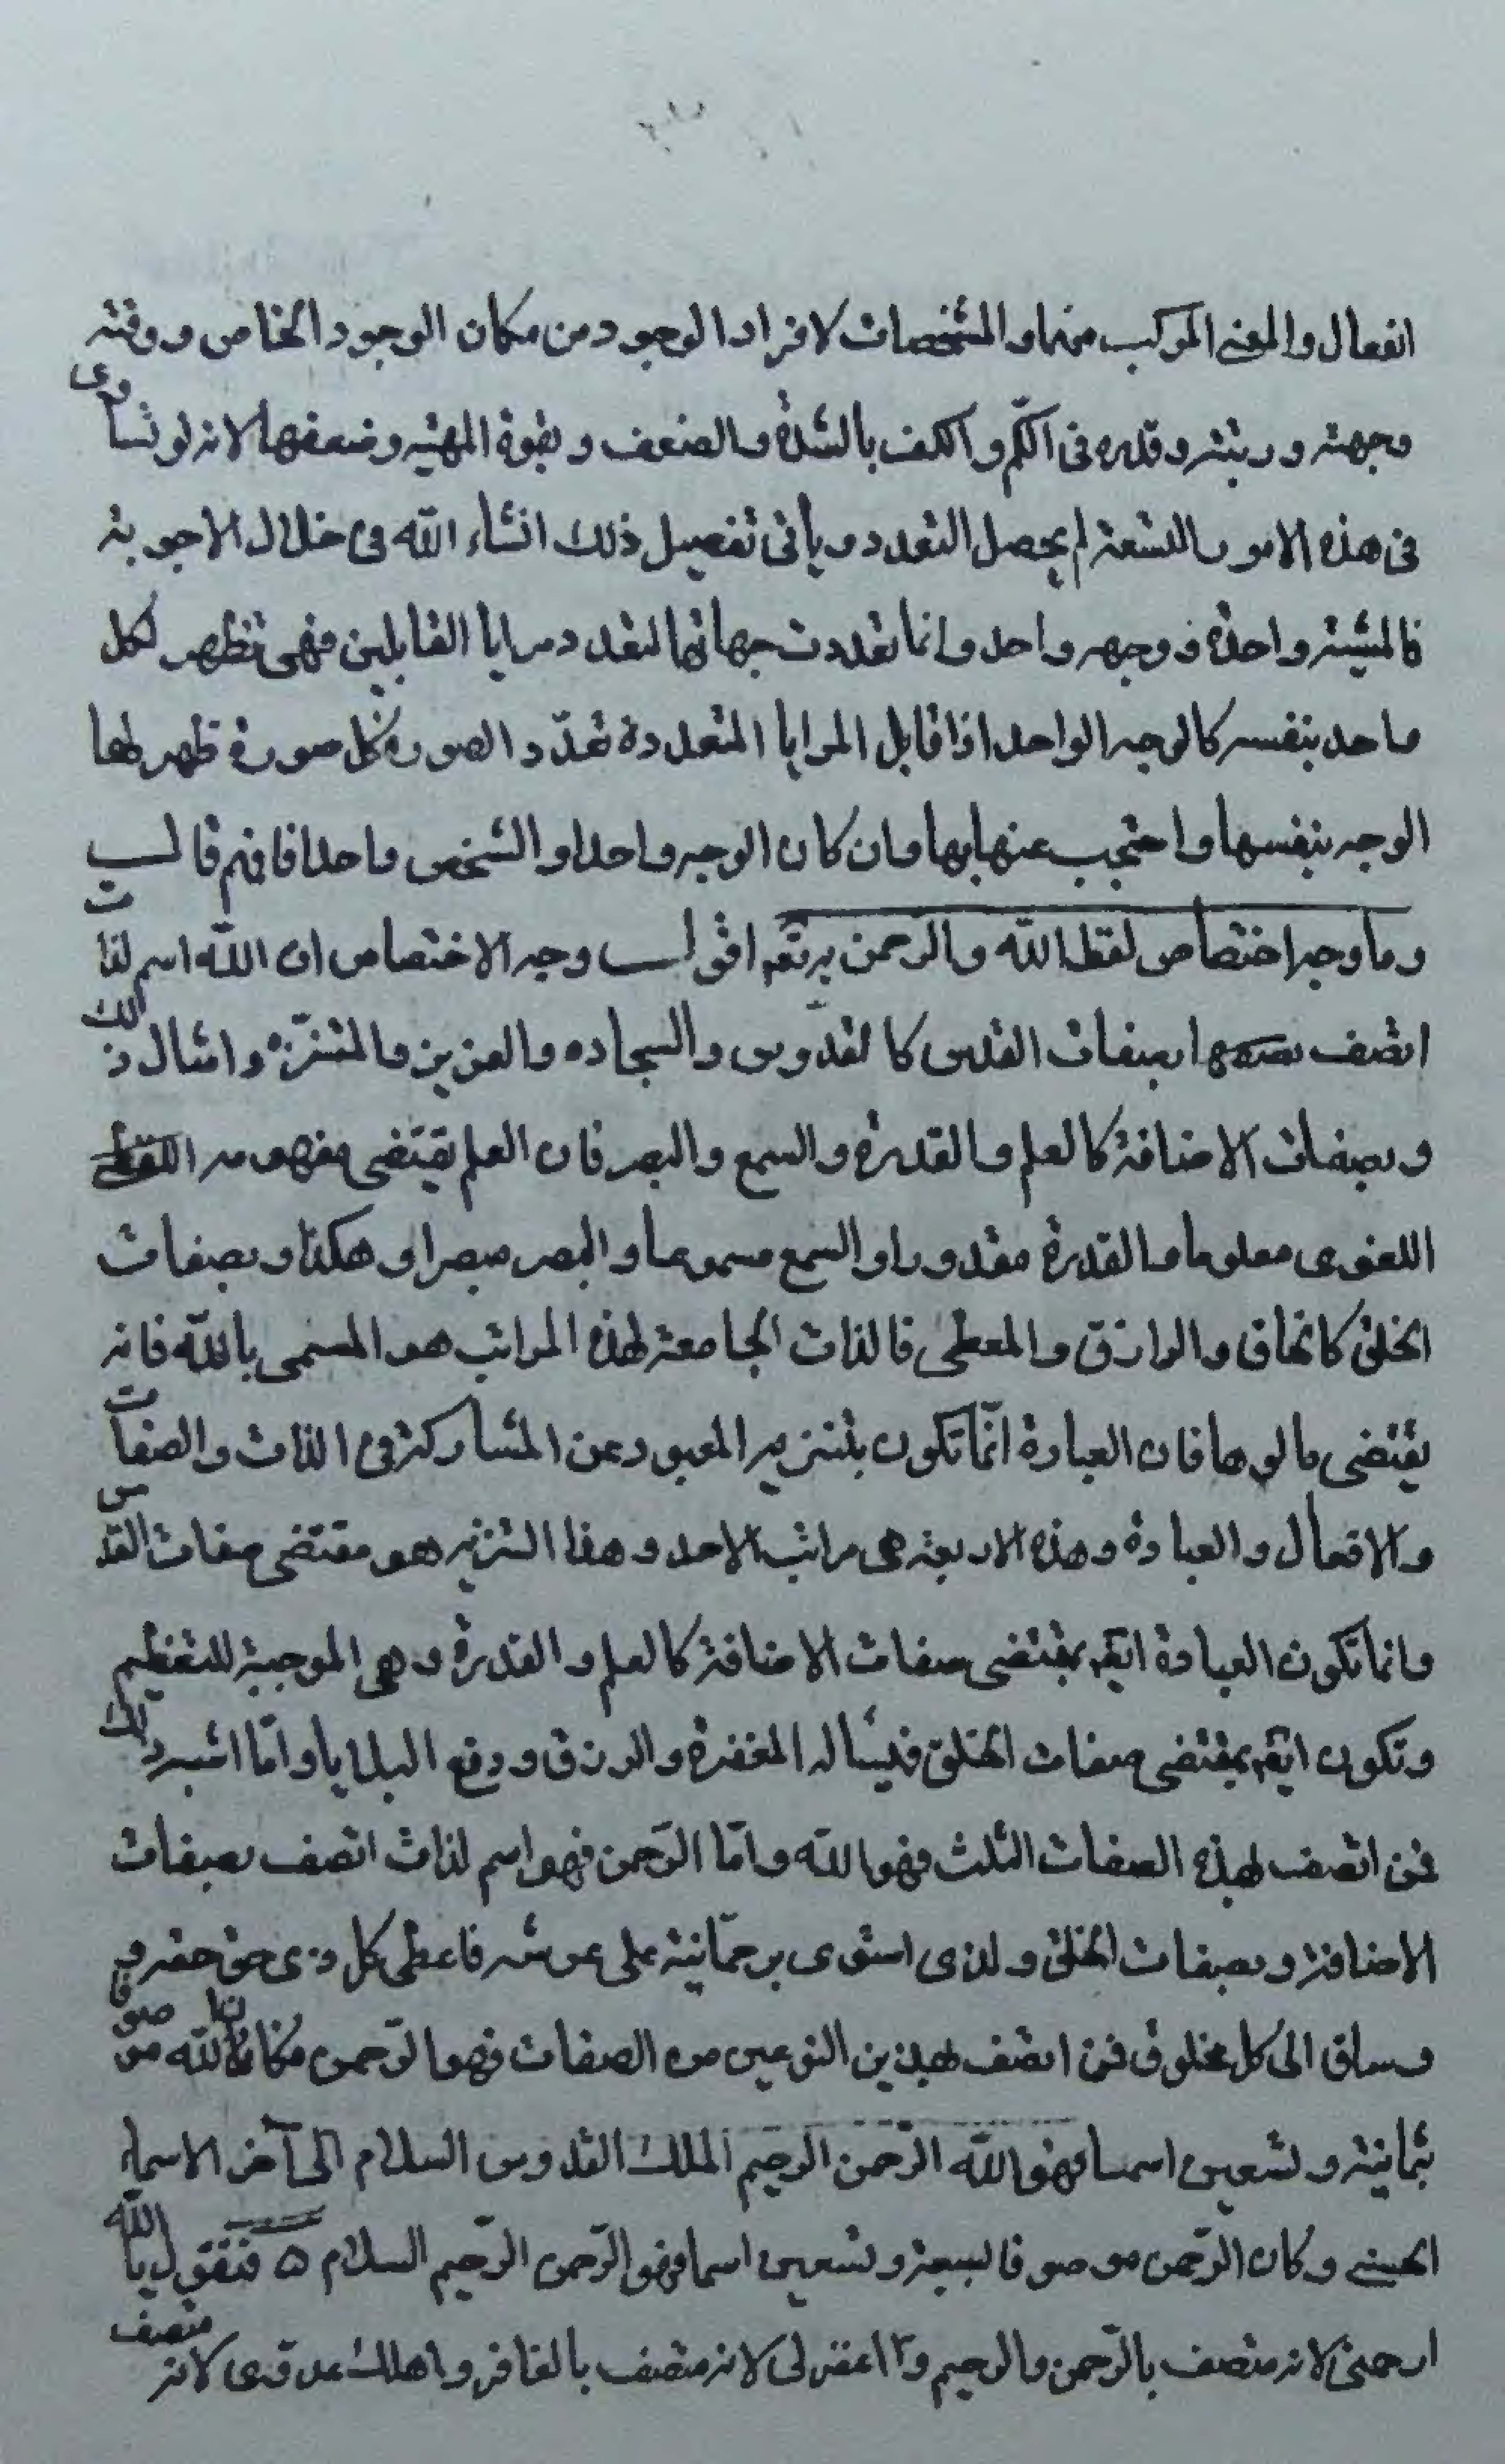 انفعال والمعنى المركب منهما والمشخصات لافراد الوجود من مكان الوجود الخاص ووقته
وجهته ورتبته وقدره فى الكم والكيف بالشدة والضعف وبقوة المهيته وضعفها لانه لو تساوى
فى هذه الامور التسعة لم يحصل التعدد ويأتى تفصيل ذلك انشاء الله فى خلال الاجوبة
فالمشية واحدة ووجهه واحد وانما تعددت جهاتها لتعدد مرايا القابلين فهى تظهر لكل
واحد بنفسه كالوجه الواحد اذا قابل المرايا المتعددة تعدّد الصورة فكل صورة ظهر لها
الوجه بنفسها واحتجب عنها بها وان كان الوجه واحدا والشخص واحدا فافهم قالت
وما وجه اختصاص لفظ الله والرحمن به تعم اقول وجه الاختصاص ان الله اسم لذات
اتصف بصفات القدس كالقدّوس والسبحان والعزيز والمتنزّه وامثال ذلك
وبصفات الاضافة كالعلم والقدرة والسمع والبصر فان العلم يقتضى مفهومه
اللغوى معلوما والقدرة مقدورا والسمع مسموعا والبصر مبصرا وهكذا وبصفات
الخلق كالخالق والرازق والمعطى فالذات الجامعة لهذه المراتب هو المسمى بالله فانه
يقتضى مالوها فان العبادة انّما تكون بتنزيه المعبود عن المشاركة فى الذات والصفات
والافعال والعبادة وهذه الاربعة هى مراتب الاحد وهذا التنزيه هو مقتضى صفات القدس
وانما تكون العبادة ايضم بمقتضى صفات الاضافة كالعلم والقدرة وهى الموجبة للتعظيم
وتكون ايضم بمقتضى صفات الخلق فيسأله المغفرة والرزق ودفع البلايا وامّا اشبه ذلك
فمن اتصف بهذه الصفات الثلث فهو الله وامّا الرّحمن فهو اسم لذات اتصف بصفات
الاضافة وبصفات الخلق ولذى استوى برحمّانيته على عرشه فاعطى كل ذى حق حقه
وساق الى كل مخلوق فمن اتصف بهذين النوعين من الصفات فهو الرّحمن فكان الله موصوفا
بثمانية وتسعين اسما فهو الله الرّحمن الرحيم الملك القدوس السلام الى آخر الاسماء
الحسنى وكان الرّحمن موصوفا بسبعة وتسعين اسما فهو الرّحمن الرّحيم السلام ه فنقول يا الله
ارحمنى لانه متصف بالرّحمن والرحيم و اغفر لى لانه متصف بالغافر واهلك عدوى لانه متصف